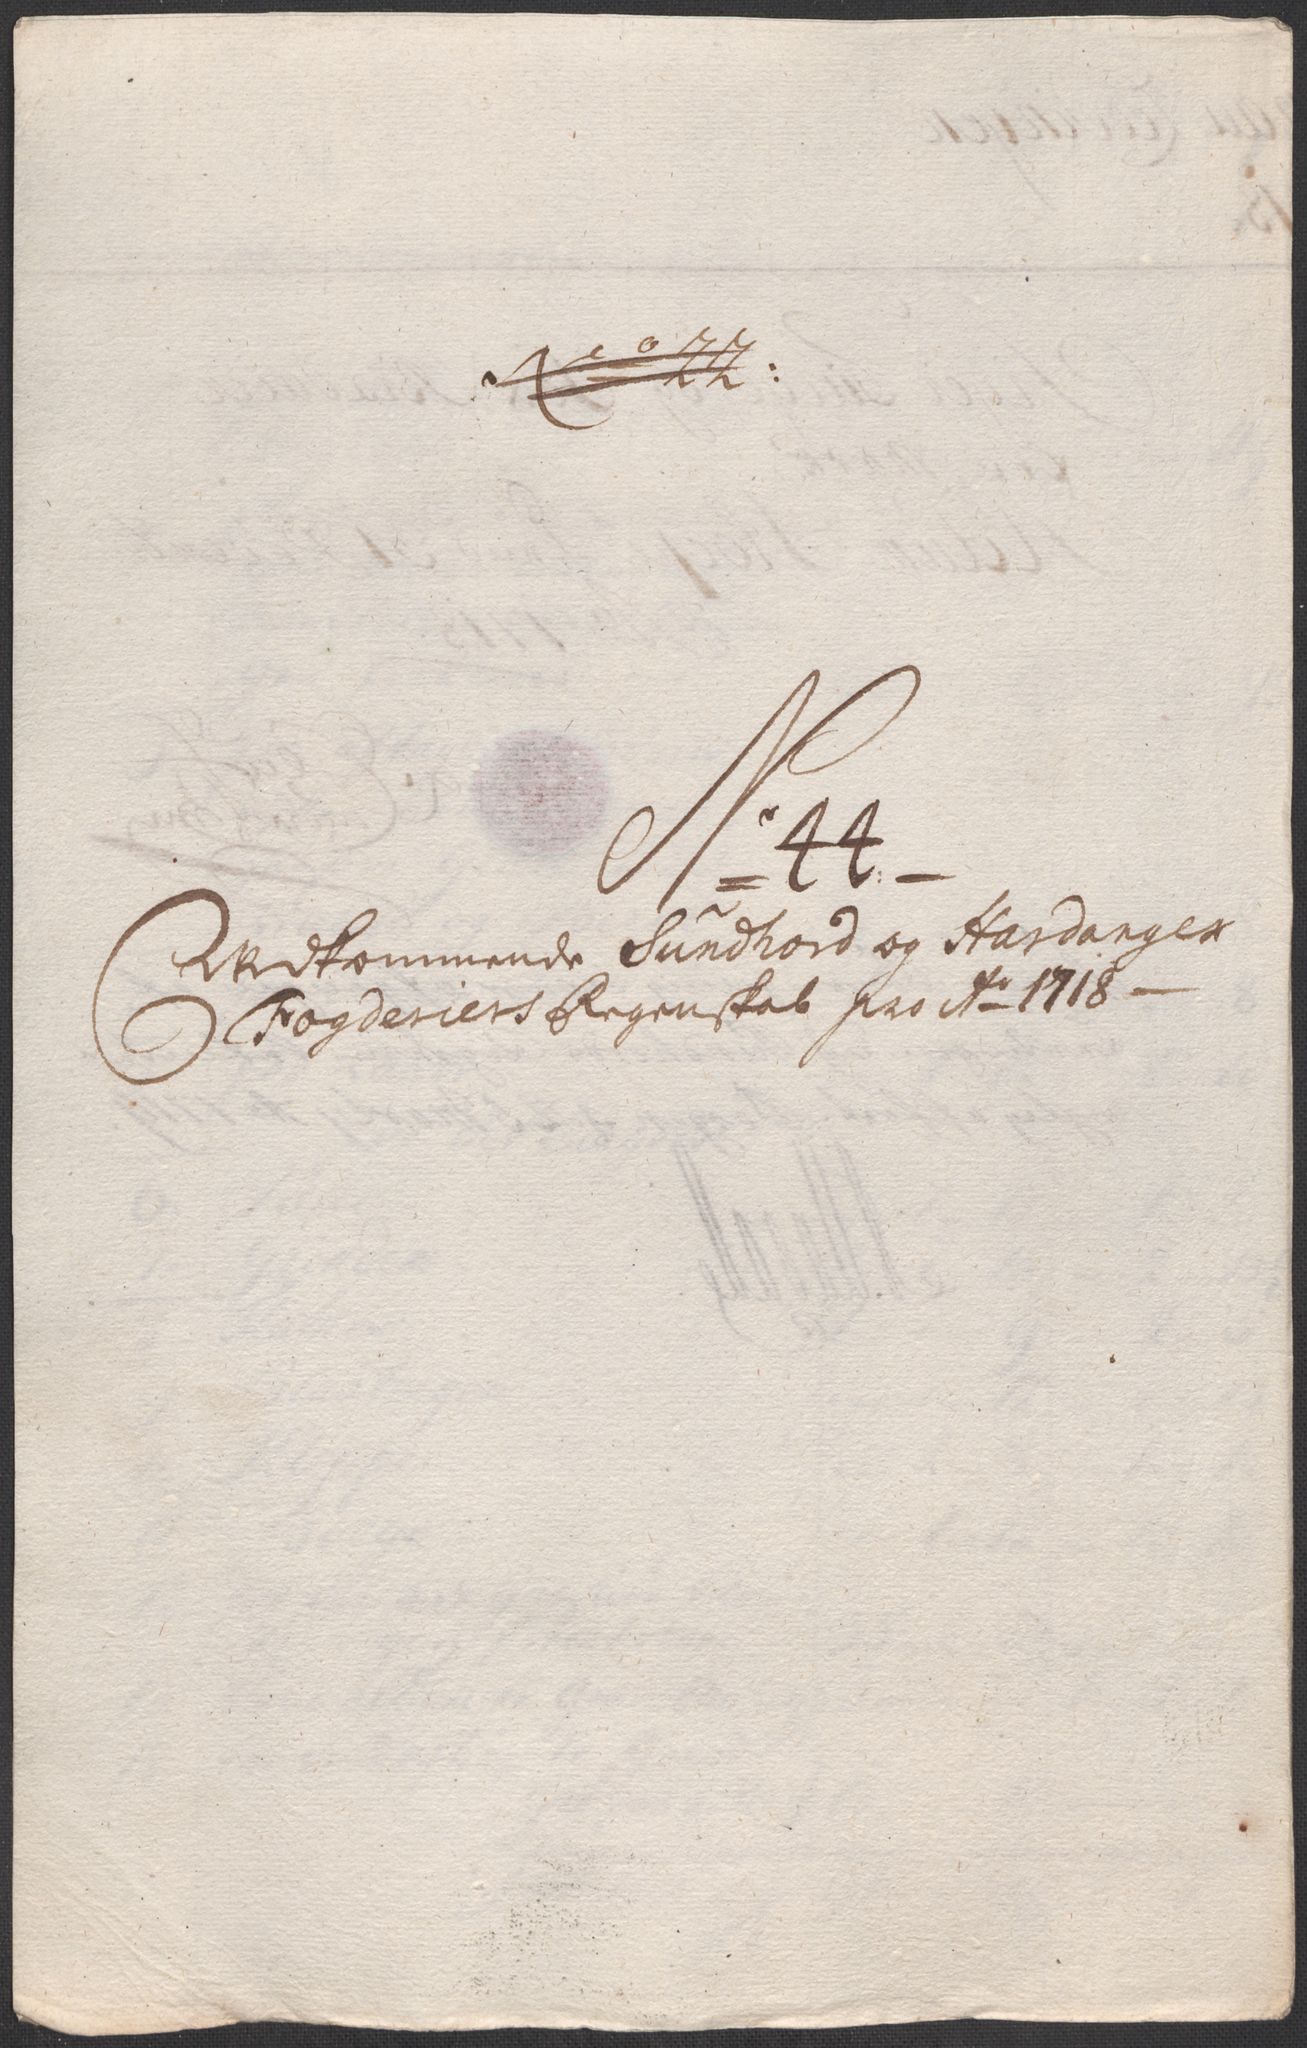 No 22:
No 44:
Vedkommende Sundhord og Hardanger
Fogderiers Regenskab pro Ao 1718